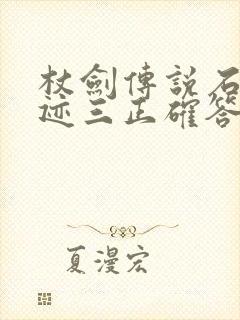 杖劍傳說石
迹三正確答
夏漫宏